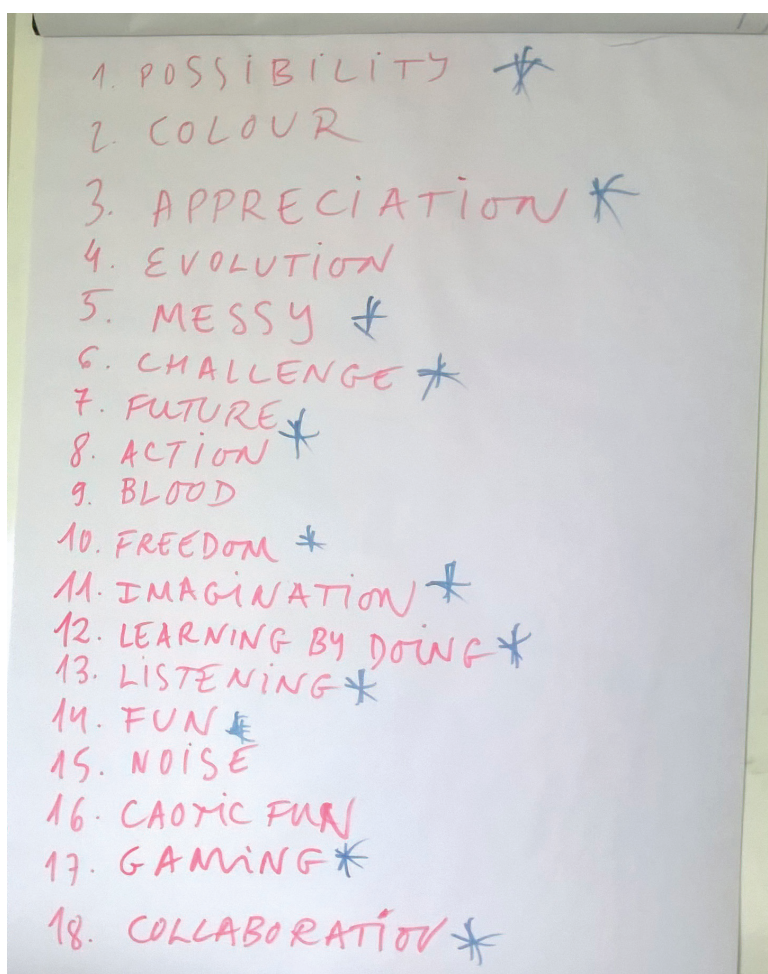 1. POSSIBILITY *
2. COLOUR
3. APPRECIATION *
4. EVOLUTION
5. MESSY *
6. CHALLENGE *
7. FUTURE
8. ACTION *
9. BLOOD
10. FREEDOM *
11. IMAGINATION *
12. LEARNING BY DOING *
13. LISTENING *
14. FUN *
15. NOISE
16. CAOTIC FUN
17. GAMING *
18. COLLABORATION *